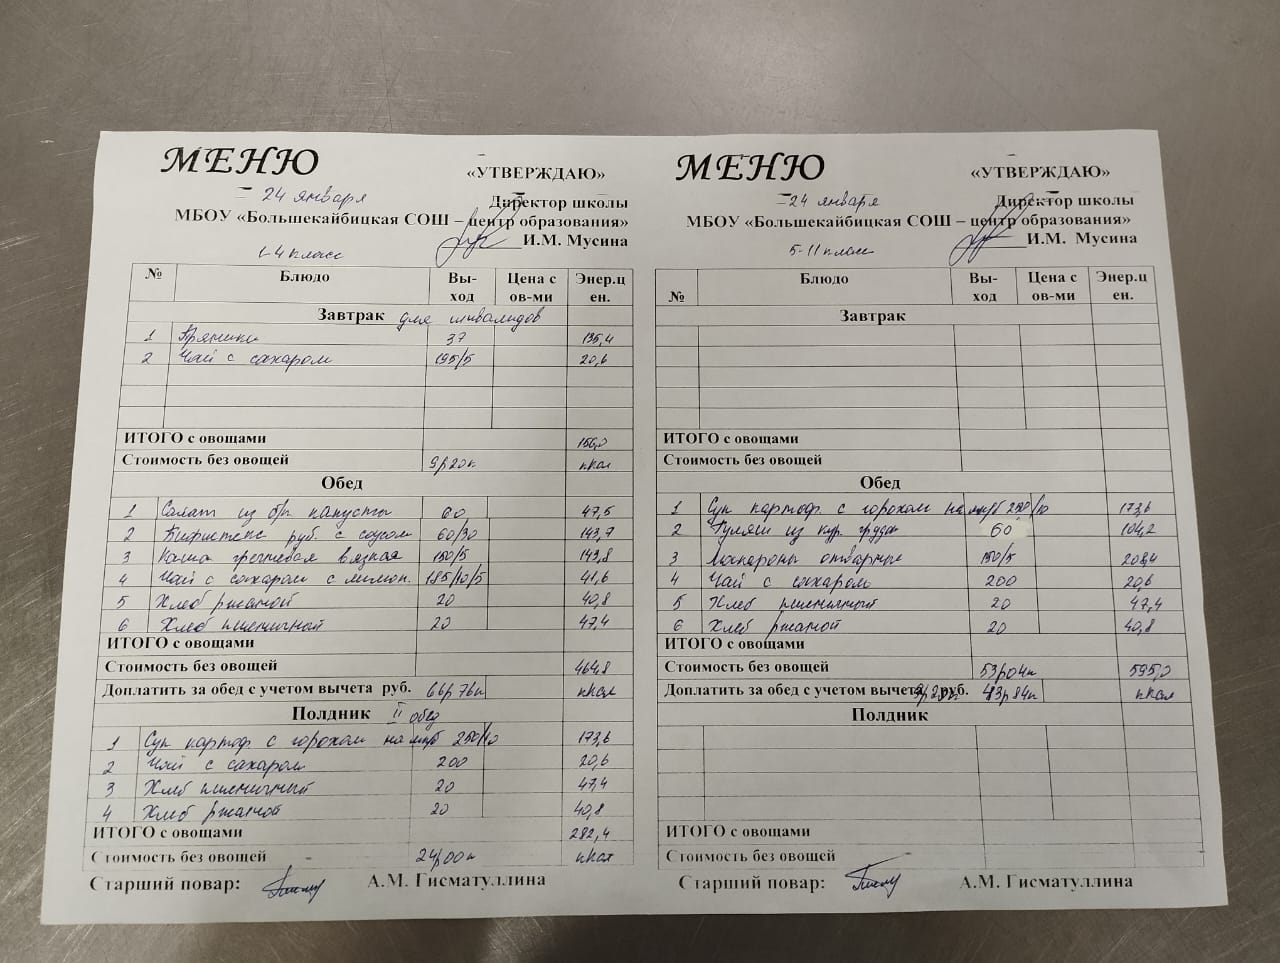 МЕНЮ
«УТВЕРЖДАЮ»
24 января
Директор школы
МБОУ «Большекайбицкая СОШ – центр образования»
И.М. Мусина
1-4 класс
№ Блюдо Вы-ход Цена с ов-ми Энер.цен.
Завтрак для инвалидов
1 Пряники 37 135,4
2 Чай с сахаром 195/5 20,6
ИТОГО с овощами 156,0
Стоимость без овощей 9р20к ккал
Обед
1 Салат из б/к капусты 60 47,5
2 Бифштекс руб. с соусом 60/30 143,7
3 Каша гречневая вязкая 150/5 143,8
4 Чай с сахаром с лимон. 185/10/5 41,6
5 Хлеб ржаной 20 40,8
6 Хлеб пшеничный 20 47,4
ИТОГО с овощами
Стоимость без овощей 464,8
Доплатить за обед с учетом вычета руб. 66р76к ккал
Полдник II обед
1 Суп картоф с горохом на м/б 250/10 173,6
2 Чай с сахаром 200 20,6
3 Хлеб пшеничный 20 47,4
4 Хлеб ржаной 20 40,8
ИТОГО с овощами 282,4
Стоимость без овощей 24р00к ккал
Старший повар: А.М. Гисматуллина
МЕНЮ
«УТВЕРЖДАЮ»
24 января
Директор школы
МБОУ «Большекайбицкая СОШ – центр образования»
И.М. Мусина
5-11 класс
№ Блюдо Вы-ход Цена с ов-ми Энер.цен.
Завтрак
ИТОГО с овощами
Стоимость без овощей
Обед
1 Суп картоф. с горохом на м/б 250/10 173,6
2 Гуляш из кур. грудки 60 104,2
3 Макароны отварные 150/5 208,4
4 Чай с сахаром 200 20,6
5 Хлеб пшеничный 20 47,4
6 Хлеб ржаной 20 40,8
ИТОГО с овощами
Стоимость без овощей 53р04к 595,0
Доплатить за обед с учетом вычета руб. 9р20к 43р84к ккал
Полдник
ИТОГО с овощами
Стоимость без овощей
Старший повар: А.М. Гисматуллина